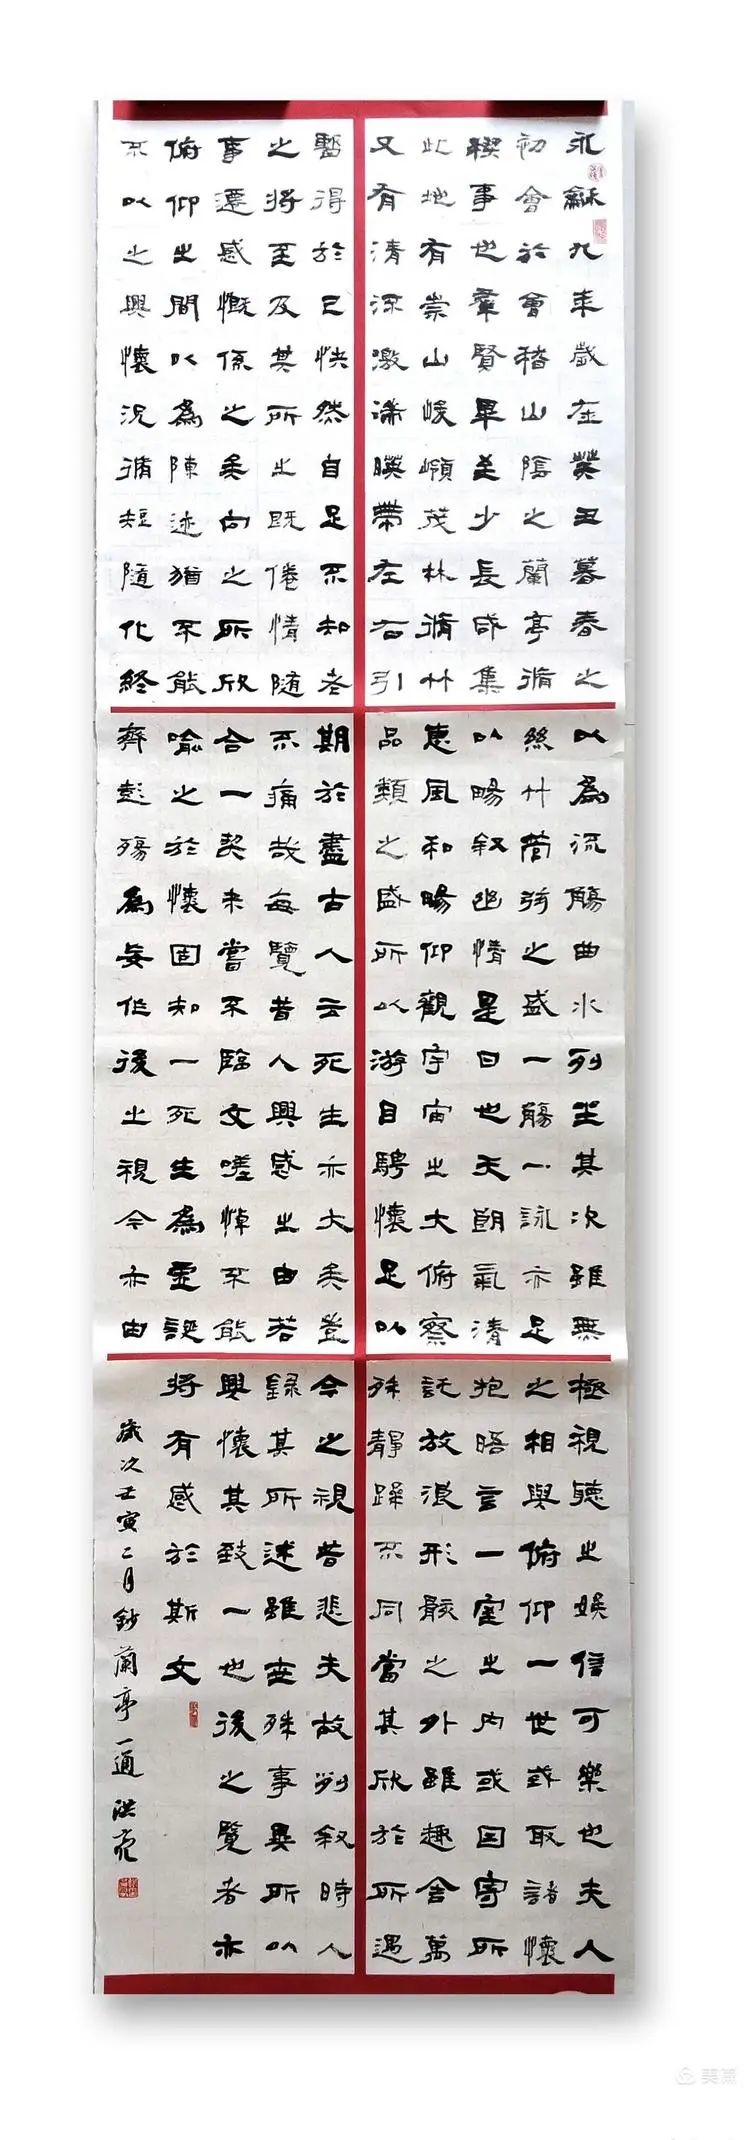 永龢九年歲在癸丑暮春之
初會於會稽山陰之蘭亭脩
稧事也羣賢畢至少長咸集
此地有崇山峻嶺茂林脩竹
又有清深激湍暎帶左右引
以為流觴曲水列坐其次雖無
絲竹管弦之盛一觴一詠亦足
以暢叙幽情是日也天朗氣清
惠風和暢仰觀宇宙之大俯察
品類之盛所以游目騁懷足以
極視聽之娛信可樂也夫人
之相與俯仰一世或取諸懷
抱晤言一室之內或因寄所
託放浪形骸之外雖趣舍萬
殊靜躁不同當其欣於所遇
暫得於己快然自足不知老
之將至及其所之既倦情隨
事遷感慨係之矣向之所欣
俯仰之間以為陳迹猶不能
不以之興懷況脩短隨化終
期於盡古人云死生亦大矣豈
不痛哉每覽昔人興感之由若
合一契未嘗不臨文嗟悼不能
喻之於懷固知一死生為虛誕
齊彭殤為妄作後之視今亦由
今之視昔悲夫故列叙時人
錄其所述雖世殊事異所以
興懷其致一也後之覽者亦
將有感於斯文
歲次壬寅二月鈔蘭亭一通 洪亮
美篇